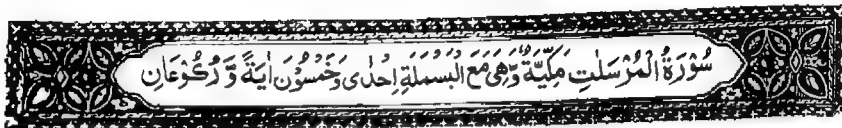 سُوْرَةُ الْمُرْسَلٰتِ مَكِّيَّةٌ وَّهِىَ مَعَ الْبَسْمَلَةِ اِحْدٰى وَخَمْسُوْنَ اٰيَةً وَّ رُكُوْعَانِ